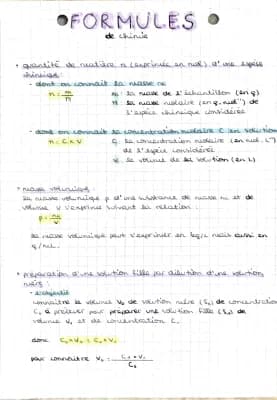 FORMULES
de chimie
• quantité de matière n (exprimée en mol) d'une espèce
chimique :
- dont on connaît la masse m
n = m/M
m : la masse de l'échantillon (en g)
M : la masse molaire (en g.mol⁻¹) de
l'espèce chimique considérée
- dont on connaît la concentration molaire C en solution
n = C × V
C : la concentration molaire (en mol.L⁻¹)
de l'espèce considérée
V : le volume de la solution (en L)
• masse volumique :
la masse volumique ρ d'une substance de masse m et de
volume V s'exprime suivant la relation :
ρ = m/V
la masse volumique peut s'exprimer en kg/L mais aussi en
g/mL.
• préparation d'une solution fille par dilution d'une solution
mère :
- L'objectif
connaître le volume V₀ de solution mère (S₀) de concentration
C₀ à prélever pour préparer une solution fille (S₁) de
volume V₁ et de concentration C₁
donc C₀ × V₀ = C₁ × V₁
pour connaître V₀ = C₁ × V₁ / C₀